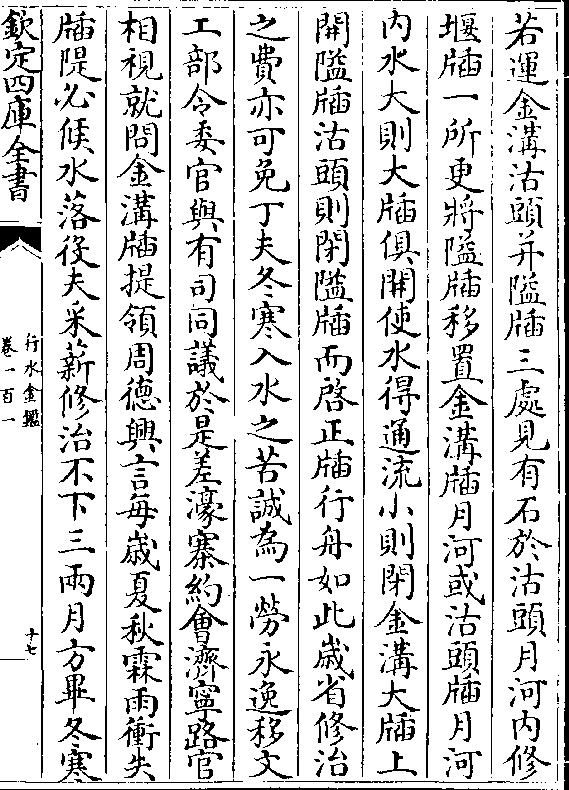 若運金溝沽頭并隘牐三處見有石於沽頭月河内修
堰牐一所更將隘牐移置金溝牐月河或沽頭牐月河
内水大則大牐俱開使水得通流小則閉金溝大牐上
開隘牐沽頭則閉隘牐而啓正牐行舟如此歲省修治
之費亦可免丁夫冬寒入水之苦誠為一勞永逸移文
工部令委官與有司同議於是差濠寨約會濟寧路官
相視就問金溝牐提領周德興言每歲夏秋霖雨衝失
牐隄必候水落役夫采薪修治不下三兩月方畢冬寒
欽定四庫全書
行水金鑑
卷一百一
十七